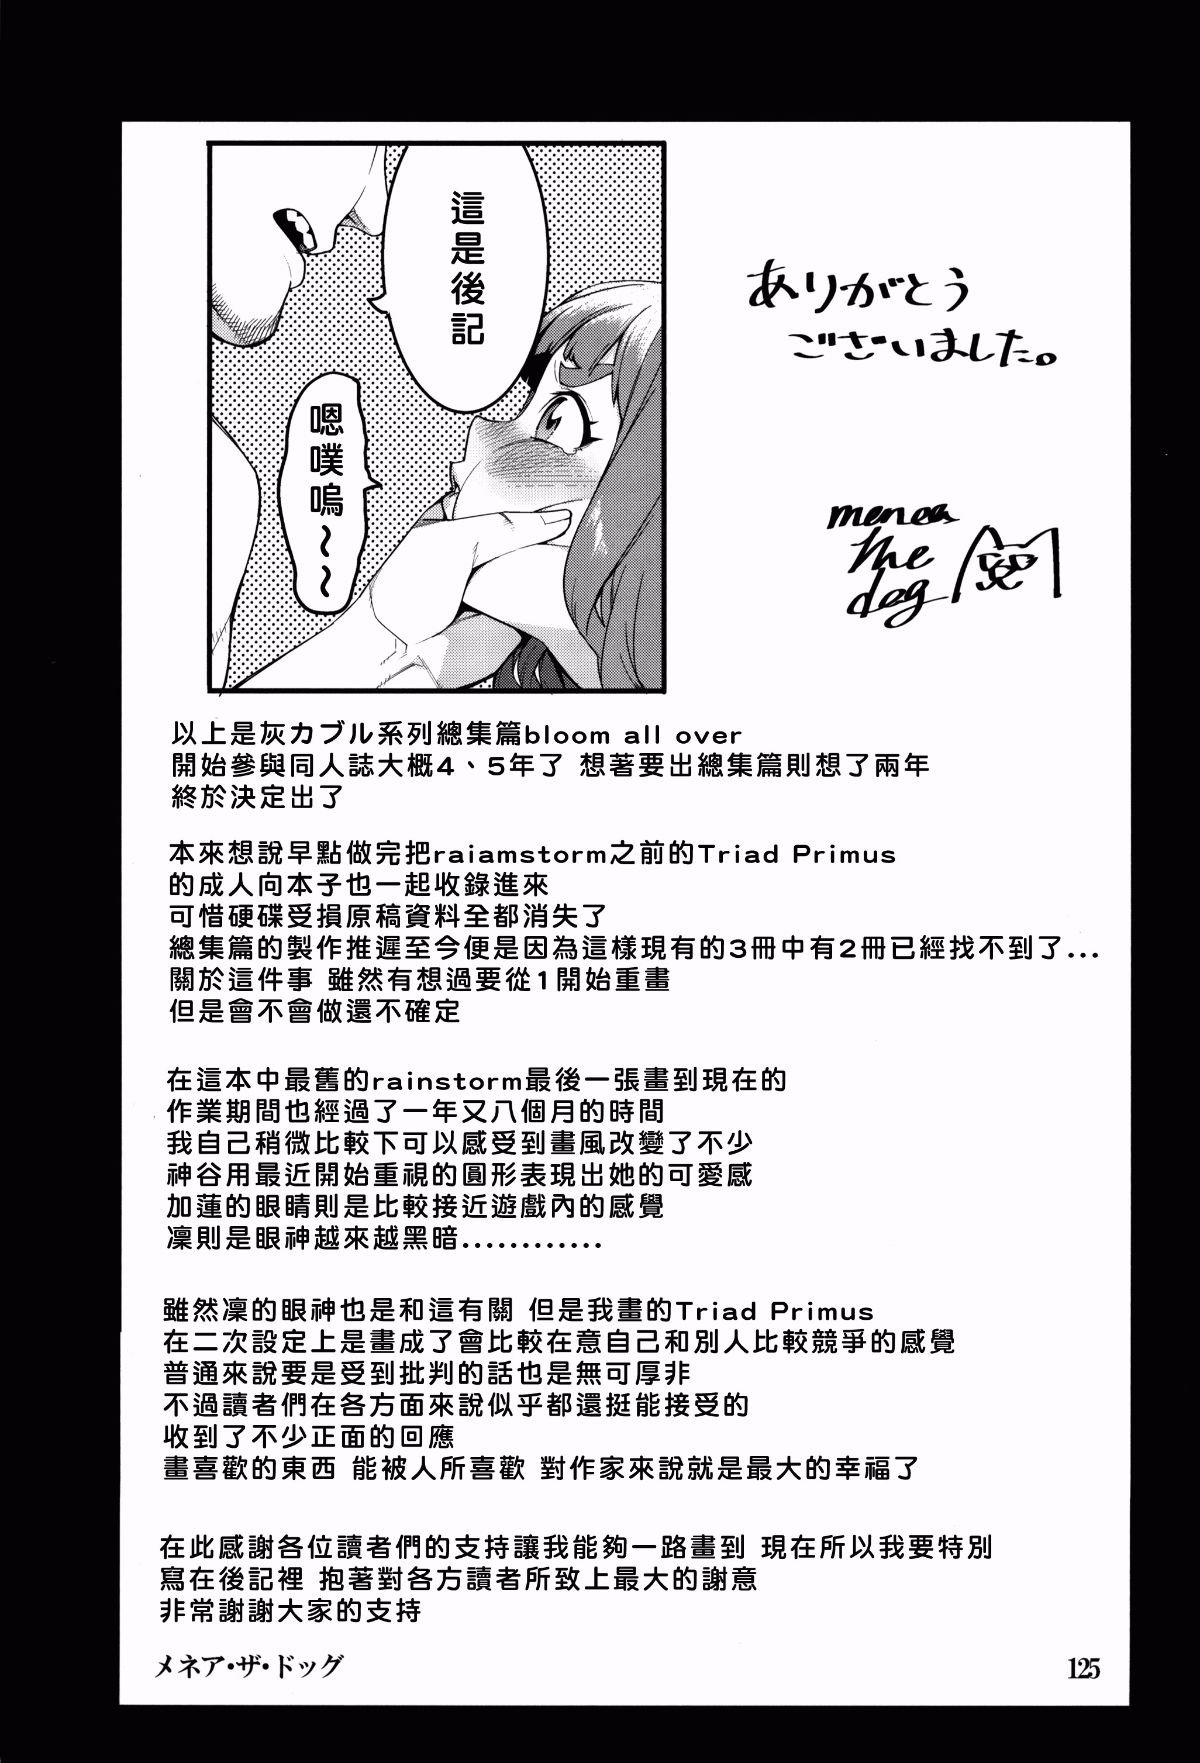 這是後記
嗯噗嗚～～
ありがとう
ございました。
menea
the
dog
以上是灰カブル系列總集篇bloom all over
開始參與同人誌大概4、5年了 想著要出總集篇則想了兩年
終於決定出了
本來想說早點做完把raiamstorm之前的Triad Primus
的成人向本子也一起收錄進來
可惜硬碟受損原稿資料全都消失了
總集篇的製作推遲至今便是因為這樣現有的3冊中有2冊已經找不到了...
關於這件事 雖然有想過要從1開始重畫
但是會不會做還不確定
在這本中最舊的rainstorm最後一張畫到現在的
作業期間也經過了一年又八個月的時間
我自己稍微比較下可以感受到畫風改變了不少
神谷用最近開始重視的圓形表現出她的可愛感
加蓮的眼睛則是比較接近遊戲內的感覺
凜則是眼神越來越黑暗............
雖然凜的眼神也是和這有關 但是我畫的Triad Primus
在二次設定上是畫成了會比較在意自己和別人比較競爭的感覺
普通來說要是受到批判的話也是無可厚非
不過讀者們在各方面來說似乎都還挺能接受的
收到了不少正面的回應
畫喜歡的東西 能被人所喜歡 對作家來說就是最大的幸福了
在此感謝各位讀者們的支持讓我能夠一路畫到 現在所以我要特別
寫在後記裡 抱著對各方讀者所致上最大的謝意
非常謝謝大家的支持
メネア・ザ・ドッグ
125